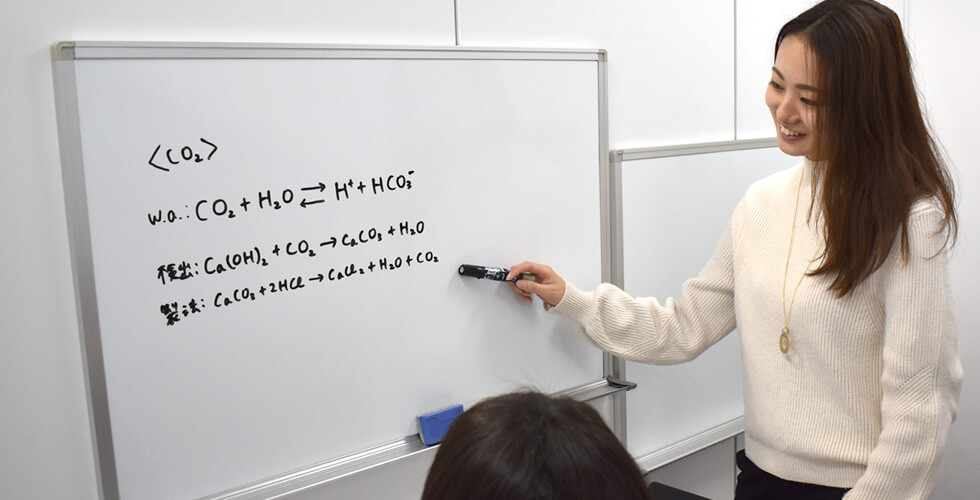 <CO₂>
w.a.: CO₂ + H₂O ⇄ H⁺ + HCO₃⁻
検出: Ca(OH)₂ + CO₂ → CaCO₃ + H₂O
製法: CaCO₃ + 2HCl → CaCl₂ + H₂O + CO₂